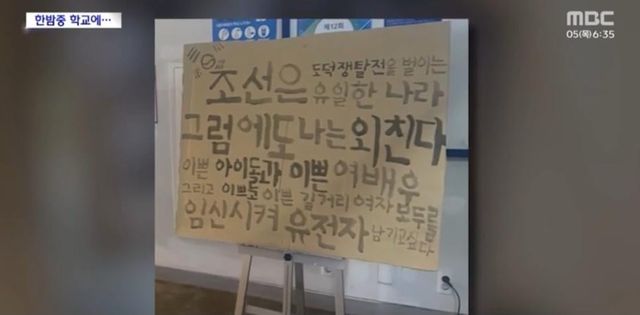 한밤중 학교에…
MBC
05(목) 6:35
제12회
조선은 도덕쟁탈전을 벌이는
유일한 나라
그럼에도 나는 외친다
이쁜 아이돌과 이쁜 여배우
그리고 이쁘고 이쁜 길거리 여자 모두를
임신시켜 유전자 남기고싶다